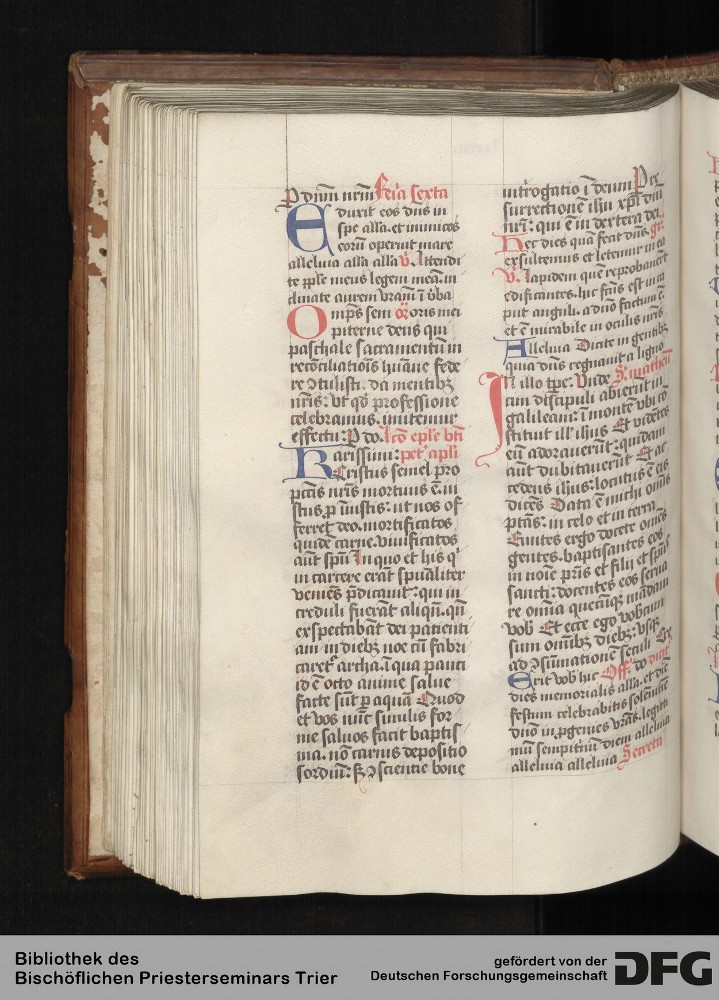 P dnm nrm Feria sexta
Eduxit eos dns in
spe alla. et inimicos
eoru operuit mare
alleluia alla alla V. Attendi
te pple meus legem mea. in
clinate aurem vram i vba
Omps sem oris mei
piterne deus qui
paschale sacramentu in
reconciliatiois huane fede
re otulisti. da mentibz
nris: vt qd professione
celebramus. imitemur
effectu: P do. lco eple bti
Karissimi: pet apli
Cristus semel pro
pctis nris mortuus e. iu
stus p iniustis: ut nos of
ferret deo. mortificatos
quide carne. viuificatos
aut spu In quo et his q
in carcere erat spualiter
venies pdicauit: qui in
creduli fuerat aliqn. qn
exspectabat dei patienti
am in diebz noe cu fabri
caret archa. i qua pauci
id e octo anime salue
facte sut p aqua Quod
et vos nuc similis for
me saluos facit baptis
ma. no carnis depositio
sordiu: sz oscientie bone
introgatio i deum Per
surrectione ihu xpi dni
nri: qui e in dextera dei. gr
Hec dies qua fecit dns.
exsultemus et letemur in ea
V. Lapidem que reprobauert
edificantes. hic fcus est in ca
put anguli. a dno factum e.
et e mirabile in oculis nris
Alleluia Dicite in gentibz
quia dns regnauit a ligno
In illo tpe: Vnde S. matheu
cim discipuli abierut in
galileam: i monte vbi co
stituit ill ihus Et videtes
eu adorauerut: quidam
aut dubitauerut Et ac
cedens ihus: locutus e eis
dices Data e michi omis
ptas: in celo et in terra
Euntes ergo docete omes
gentes. baptisantes eos
in noie pris et filij et spus
sancti: docentes eos serua
re omia quecuq madaui
vob Et ecce ego vobcum
sum omibz diebz: vsq
ad osumatione seculi Co
Erit vob hic Off do dicit
dies memorialis alla. et die
festum celebrabitis solenne
dno in pgenies vras. legiti
mu sempitnu diem alleluia
alleluia alleluia Secreta
Bibliothek des
Bischöflichen Priesterseminars Trier
gefördert von der
Deutschen Forschungsgemeinschaft
DFG